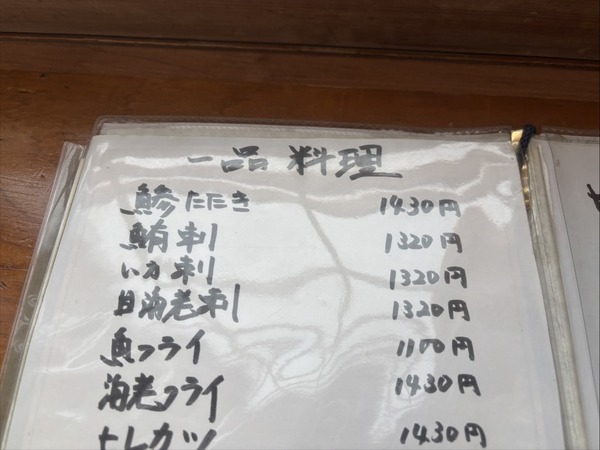 一品料理
鯵たたき 1430円
鮪刺 1320円
いカ刺 1320円
甘海老刺 1320円
魚フライ 1100円
海老フライ 1430円
ヒレカツ 1430円